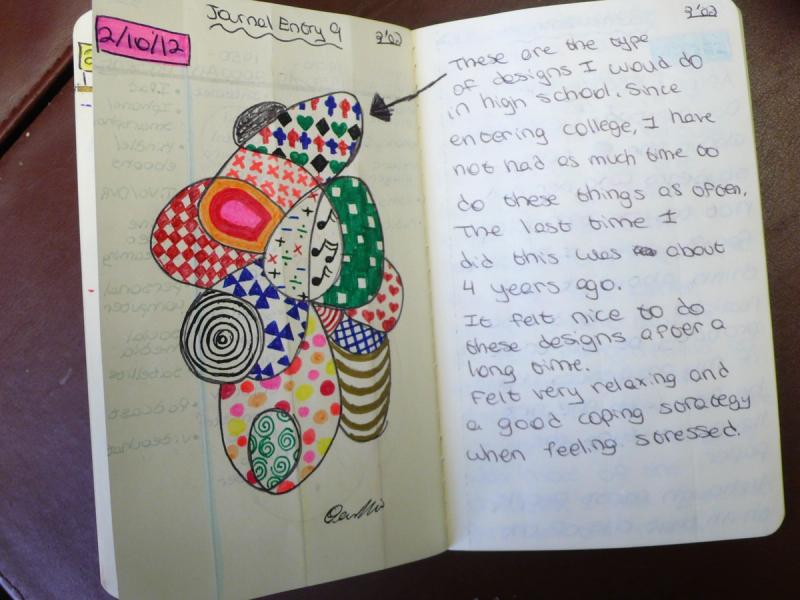 Journal Entry 9
2/10/12
These are the type
of designs I would do
in high school. Since
entering college, I have
not had as much time to
do these things as often.
The last time I
did this was about
4 years ago.
It felt nice to do
these designs after a
long time.
Felt very relaxing and
a good coping strategy
when feeling stressed.